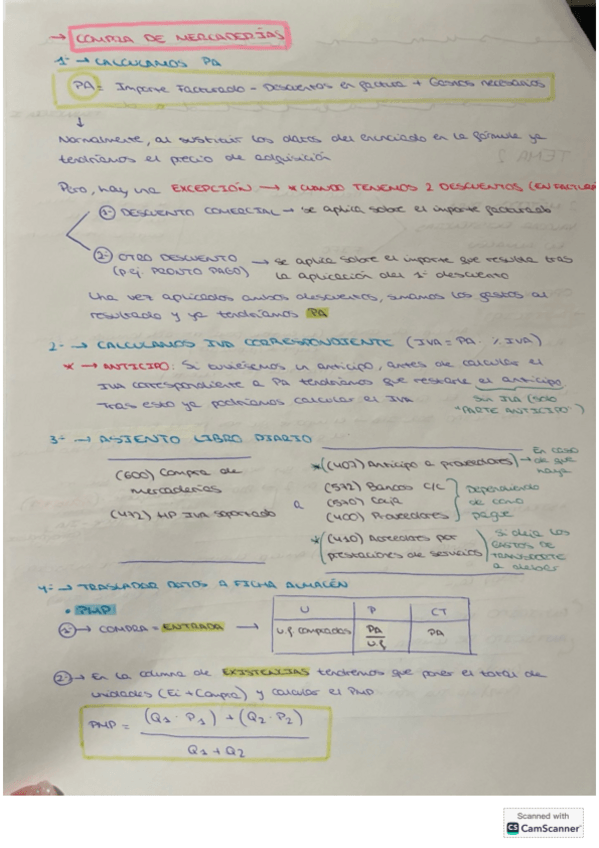 → COMPRA DE MERCADERÍAS
1º → CALCULAMOS PA
PA = Importe Facturado - Descuentos en factura + Gastos necesarios
↓
Normalmente, al sustituir los datos del enunciado en la fórmula ya
tendríamos el precio de adquisición
Pero, hay una EXCEPCIÓN → * CUANDO TENEMOS 2 DESCUENTOS (EN FACTURA
1º DESCUENTO COMERCIAL → se aplica sobre el importe facturado
2º OTRO DESCUENTO → se aplica sobre el importe que resulta tras
(p.ej. PRONTO PAGO) la aplicación del 1º descuento
Una vez aplicados ambos descuentos, sumamos los gastos al
resultado y ya tendríamos PA
2º → CALCULAMOS IVA CORRESPONDIENTE (IVA = PA · % IVA)
* → ANTICIPO: Si tuviésemos un anticipo, antes de calcular el
IVA correspondiente a PA tendríamos que restarle el anticipo
Tras esto ya podríamos calcular el IVA
Sin IVA (solo
"PARTE ANTICIPO")
3º → ASIENTO LIBRO DIARIO
(600) Compra de
mercaderías
(472) HP IVA soportado
a
*(407) Anticipo a proveedores) → En caso
de que
haya
(572) Bancos c/c
(570) Caja
(400) Proveedores
Dependiendo
de como
pague
*(410) Acreedores por
prestaciones de servicios
Si deja los
GASTOS DE
TRANSPORTE
a deber
4º → TRASLADAR DATOS A FICHA ALMACÉN
• PMP
1º → COMPRA = ENTRADA →
U P CT
u.f compradas PA/u.f PA
2º → En la columna de EXISTENCIAS tendremos que poner el total de
unidades (Ei + Compra) y calcular el PMP
PMP = (Q1 · P1) + (Q2 · P2)
Q1 + Q2
Scanned with
CS CamScanner